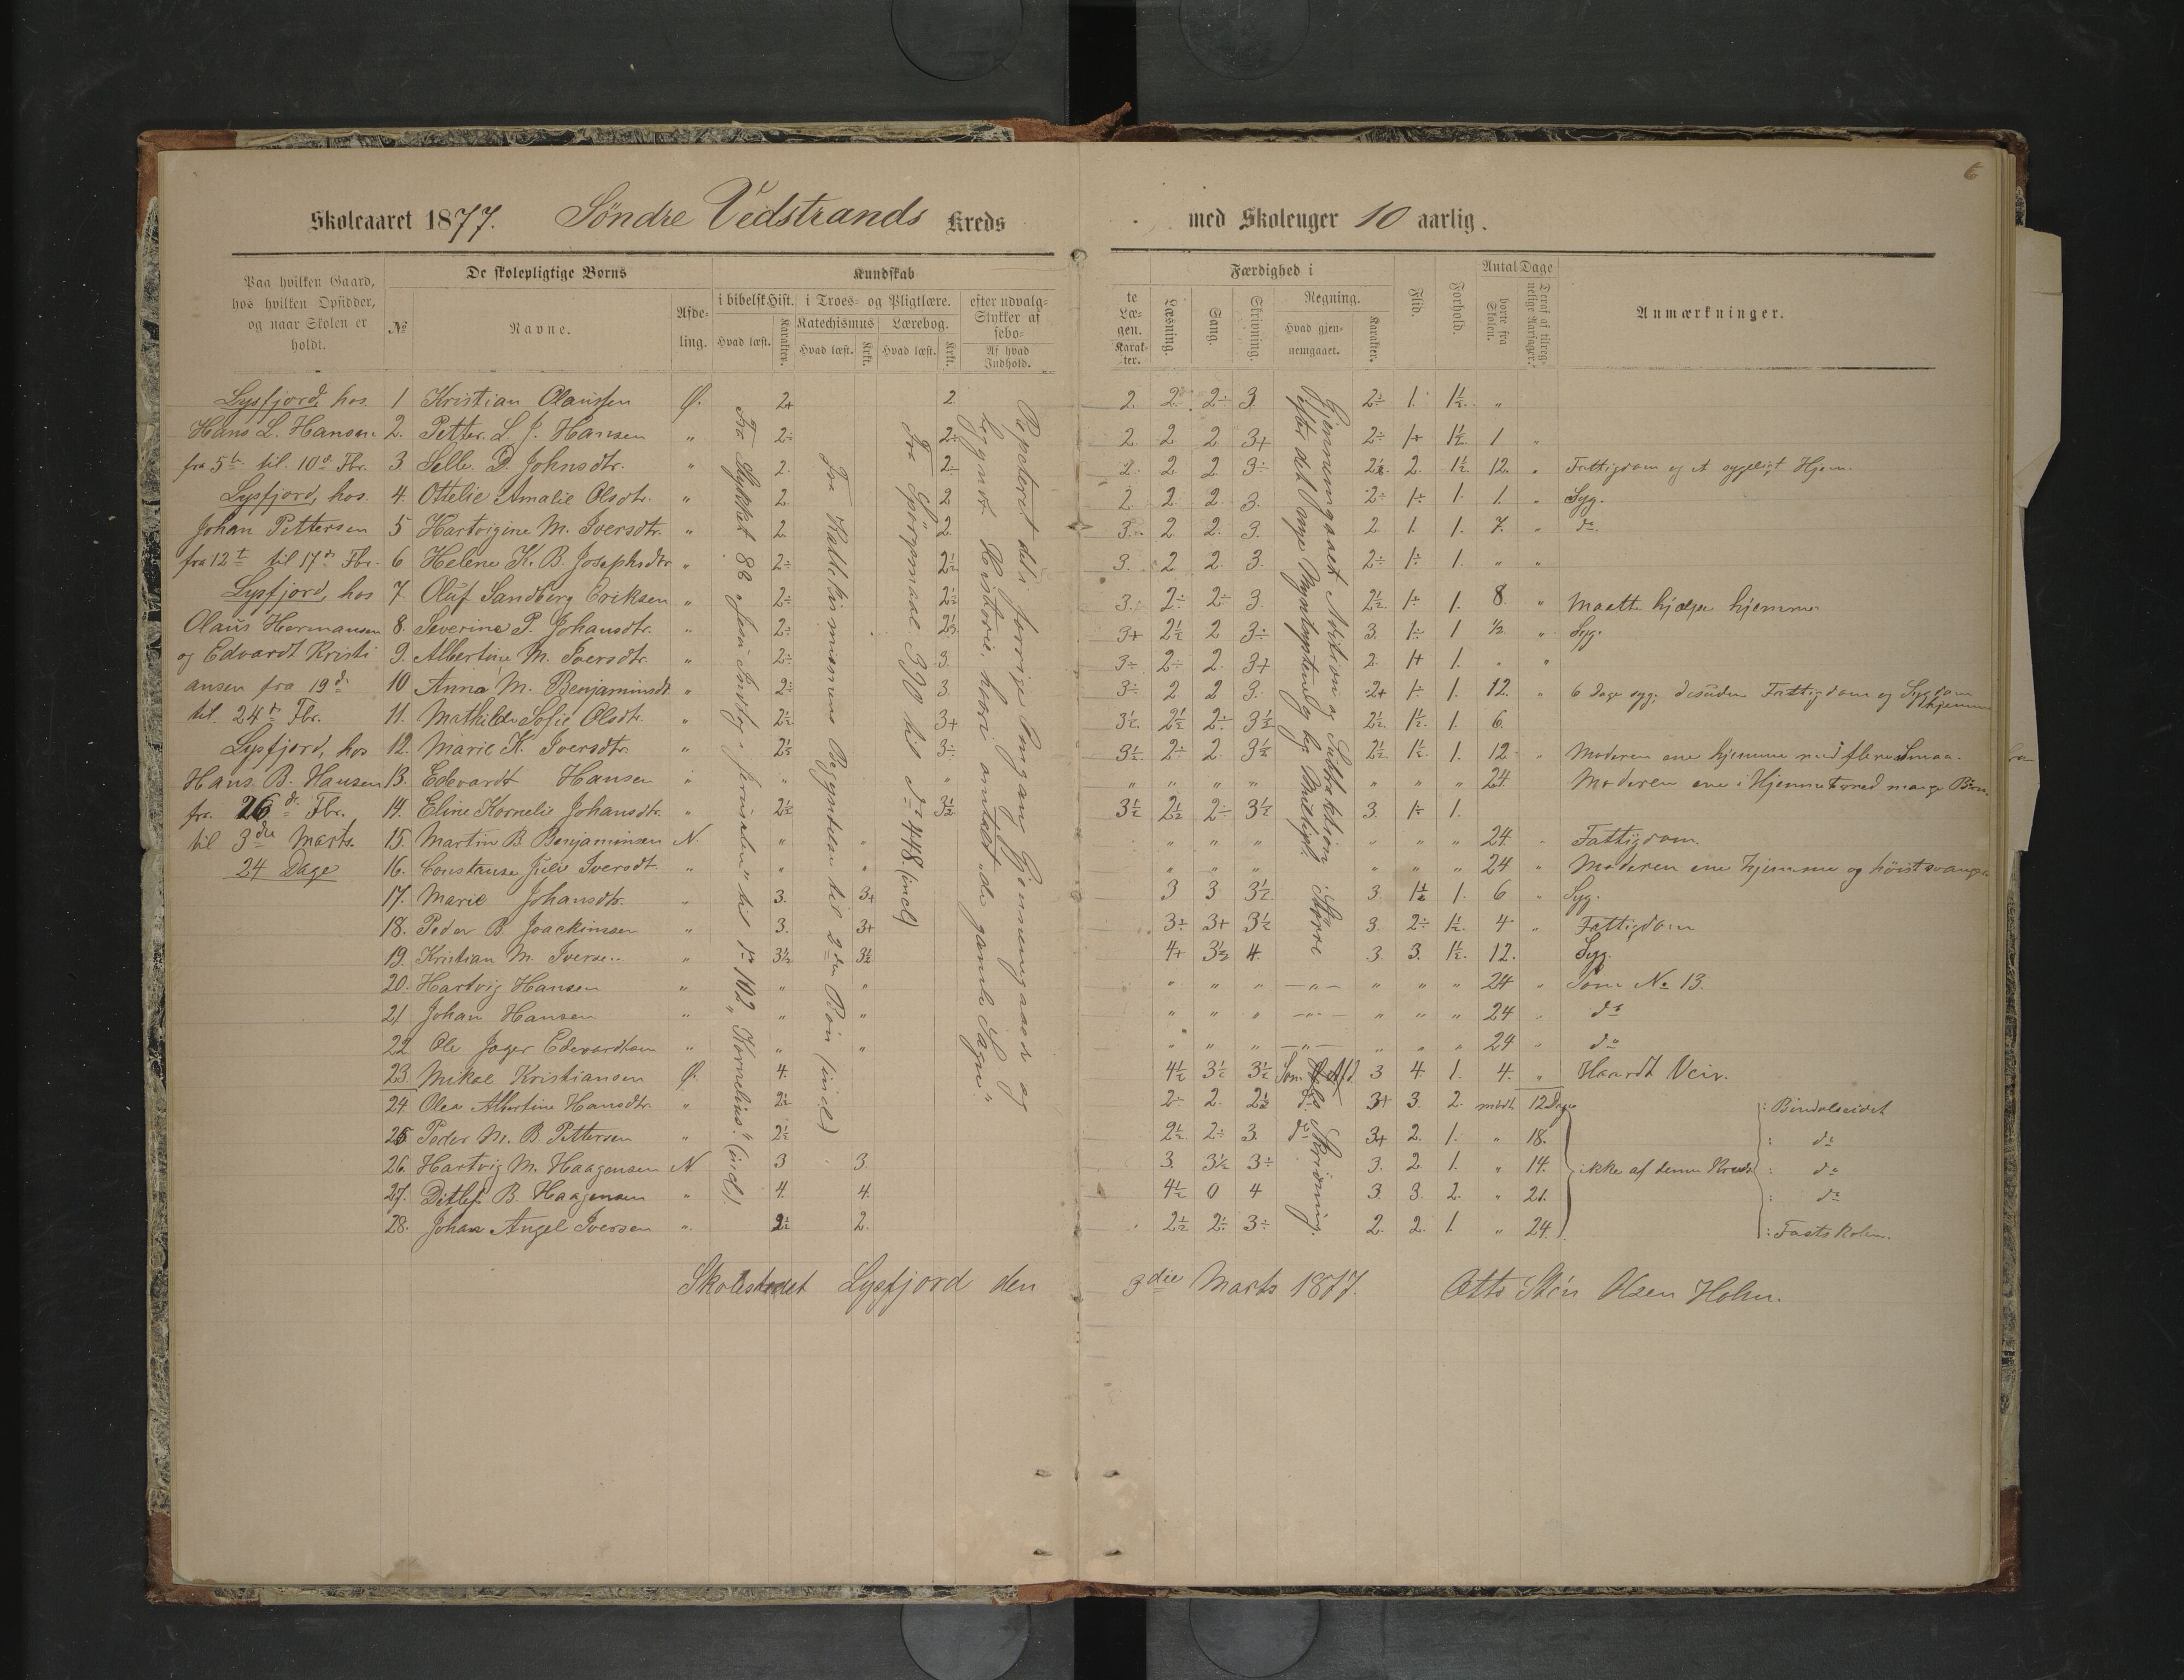 6
Skoleaaret 1877. Söndre Vedstrands Kreds med Skoleuger 10 aarlig.
Paa hvilken Gaard, hos hvilken Opsidder, og naar Skolen er holdt.
De skolepligtige Børns
№
Navne.
Afdeling.
Kundskab
i bibelsk Hist.
Hvad læst.
Karakter.
i Troes- og Pligtlære.
Katechismus
Hvad læst.
Krkt.
Lærebog.
Hvad læst.
Krkt.
efter udvalgte Stykker af Læsebogen.
Af hvad Indhold.
Karakter.
Færdighed i
Læsning.
Sang.
Skrivning.
Regning.
Hvad gjennemgaaet.
Karakter.
Flid.
Forhold.
Antal Dage
borte fra Skolen.
Deraf af tilregnelige Aarsager.
Anmærkninger.
Lysfjord, hos
Hans L. Hansen
fra 5te til 10de Fbr.
Lysfjord, hos
Johan Pettersen
fra 12te til 17de Fbr.
Lysfjord, hos
Olaus Hermansen
og Edvardt Kristi
ansen fra 19de
til 24de Fbr.
Lysfjord, hos
Hans B. Hansen
fra 26de Fbr.
til 3die Marts.
24 Dage
Fra Stykket 88 "Jesu Indtog i Jerusalem" til № 102 "Kornelius." (incl.)
Fra Katekismusens Begyndelse til 2den Bøn (incl.)
Fra Spörgsmaal 390 til do 448 (incl)
Repeteret det i forrige Omgang Gjennemgaaede og
begyndt Historie, hvori omtalt de gamle Sagn."
Gjennemgaaet Addition og Subtraktion i Större
1 Kristian Olaussen Ö. 2+ 2. 2. 2. 2÷ 3 2÷ 1. 1½. "
2. Petter L. J. Hansen " 2÷ 2÷ 2. 2 2 3+ 2÷ 1+ 1½. 1 "
3. Selle D. Johnsdtr. " 2. 2. 2. 2. 2 3÷ 2½. 2. 1½ 12. " Fattigdom og et sygeligt Hjem.
4. Ottelie Amalie Olsdtr. " 2. 2 2. 2. 2. 3. 2÷ 1÷ 1. 1. " Syg.
5 Hartvigine M. Iversdtr. " 2. 2. 3. 2 2. 3. 2. 1. 1. 7. " do.
6 Helene K. B. Josephsdtr " 2÷ 2½ 3. 2 2. 3. 2÷ 1÷ 1. " "
7. Oluf Sandberg Eriksen " 2÷ 2½ 3. 2÷ 2÷ 3 2½. 1÷ 1. 8. " Maatte hjælpe hjemme
8. Severine P. Johansdtr. " 2÷ 2½. 3+ 2½ 2 3÷ 3. 1÷ 1 ½ " Syg.
9. Albertine M. Iversdtr. " 2÷ 3. 3÷ 2÷ 2. 3+ 2. 1+ 1. " "
10 Anna M. Benjaminsdt " 2÷ 3. 3÷ 2 2 3. 2+ 1÷ 1. 12. " 6 Dage syg; desuden Fattigdom og Sygdom hjemme
11. Mathilde Sofie Olsdtr. " 2½ 3+ 3½ 2½ 2÷ 3½ 2½. 1½. 1. 6.
12. Marie K. Iversdtr. " 2½ 3÷ 3½ 2÷ 2. 3½ 2½ 1½. 1. 12 " Moderen ene hjemme med flere Smaa.
13. Edevardt Hansen " " " " " " " " " " 24. Moderen ene i Hjemmet med mange Börn.
14. Eline Kornelie Johansdtr. " 2½ 3½ 3½ 2½ 2÷ 3½ 3. 1÷ 1.
15. Martin B. Benjaminsen N. " " " " " " " " 24. " Fattigdom.
16. Constanse Julie Iversdt. " " " " " " " " " 24 " Moderen ene hjemme og höist svanger
17. Marie Johansdtr. " 3. 3+ 3 3 3½ 3. 1½ 1. 6 " Syg.
18. Peder B. Joackimsen " 3. 3+ 3÷ 3+ 3½ 3. 2÷ 1½. 4 " Fattigdom
19. Kristian M. Iversen " 3½ 3½ 4+ 3½ 4. 3. 3. 1½. 12. Syg.
20. Hartvig Hansen " " " " " " —"— " " " 24 " Som № 13.
21 Johan Hansen " " " " " " —"— " " " 24 " do
22 Ole Jager Edevardsen " " " " " " —"— " " " 24 " do
23. Mikal Kristiansen Ö. 4. 4½ 3½ 3½ 3 4. 1. 4. " Haardt Veir.
24. Olea Albertine Hansdtr. " 2½ 2÷ 2. 2½ do 3+ 3. 2. mödt 12 Dage : Bindalseidet
25 Peder M. B. Pettersen " 2½ 2½ 2÷ 3. do 3+ 2. 1. " 18. : do
26. Hartvig M. Haagensen N. 3 3. 3. 3½ 3÷ 3. 2. 1. " 14. ikke af denne Kreds : do
27. Ditlef B. Haagensen " 4. 4. 4½ 0 4 3. 3. 2. " 21. : do
28. Johan Angel Iversen " 2½ 2. 2½ 2÷ 3÷ 2. 2. 1. " 24. : Fastskolen.
Skolestedet Lysfjord den 3die Marts 1877. Otto Olsen Holm.